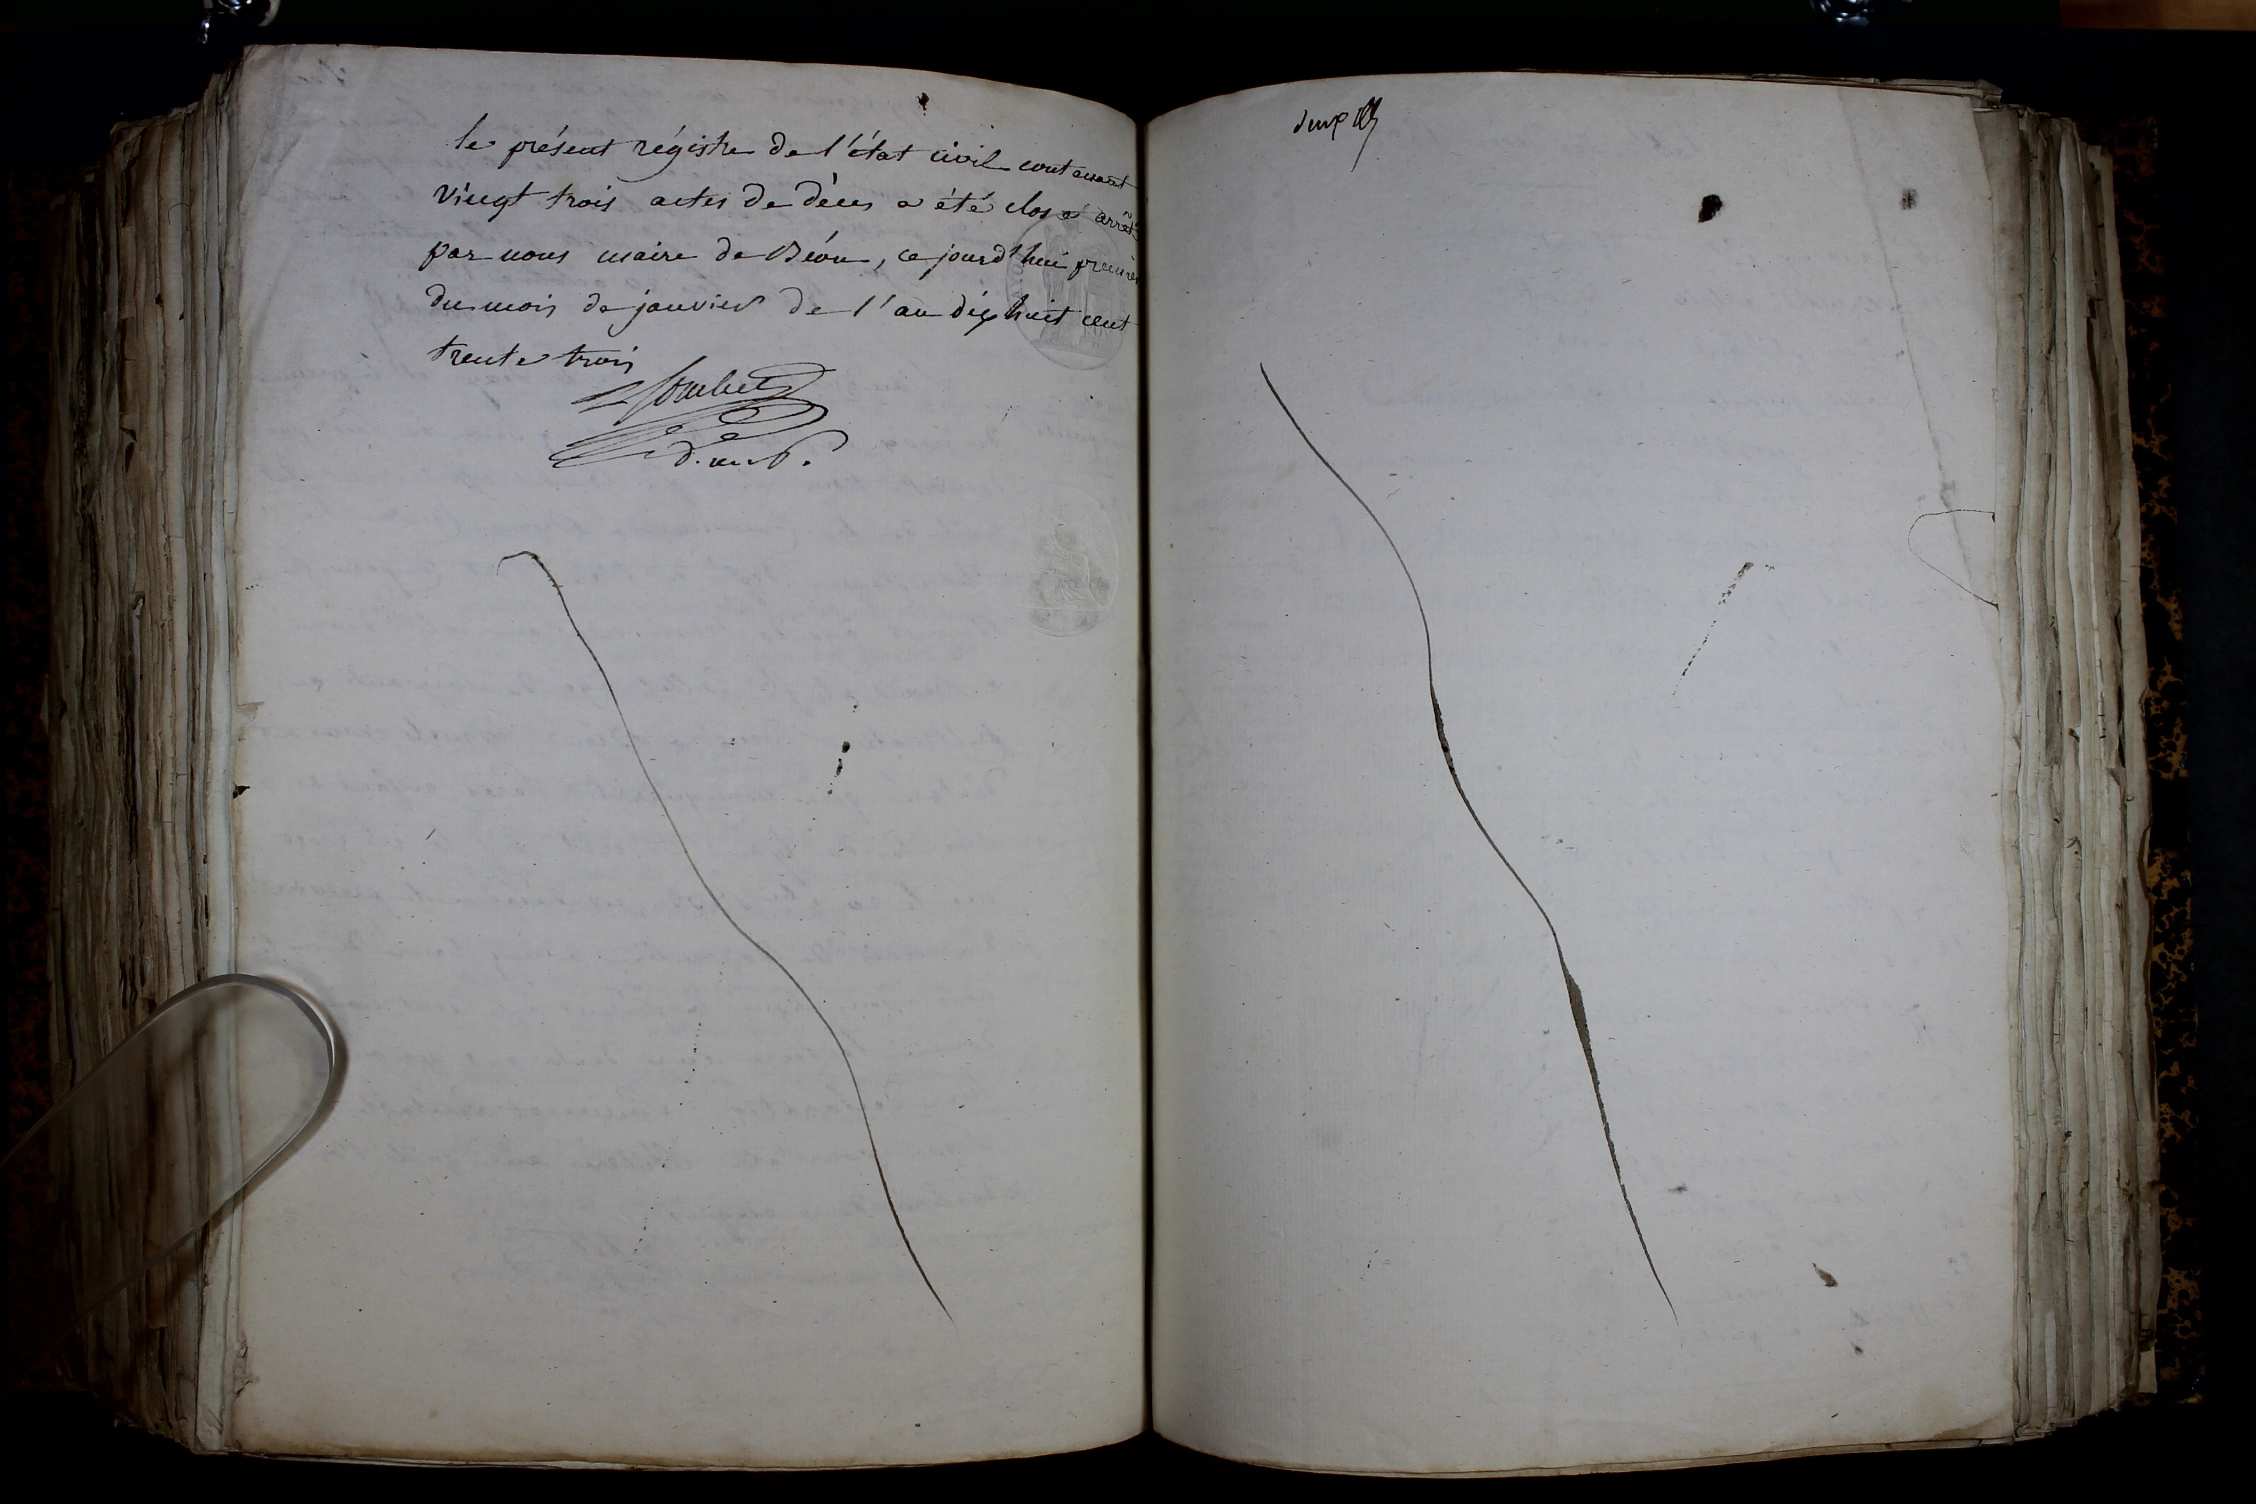 le présent régistre de l'état civil contenant
vingt trois actes de décès a été clos et arrêté
par nous maire de Béon, ce jourd'hui premier
du mois de janvier de l'an dix huit cent
trente trois